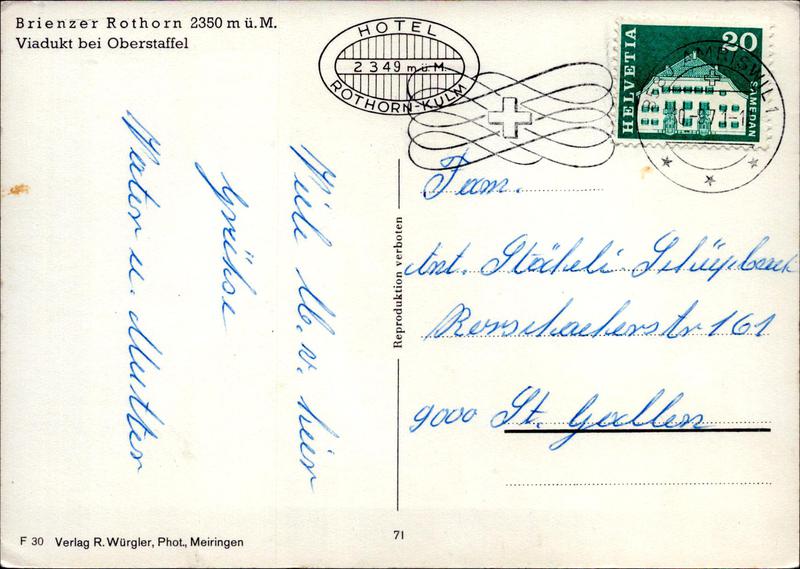 Brienzer Rothorn 2350 m ü. M.
Viadukt bei Oberstaffel
HOTEL
2349 m ü. M.
ROTHORN-KULM
HELVETIA
20
SAMEDAN
AMRISWIL 1
Viele lb. v. hier
Grüsse
Vater u. Mutter
Reproduktion verboten
Fam.
Ant. Stäheli-Schüpbach
Rorschacherstr 161
9000 St. Gallen
F 30 Verlag R. Würgler, Phot., Meiringen
71